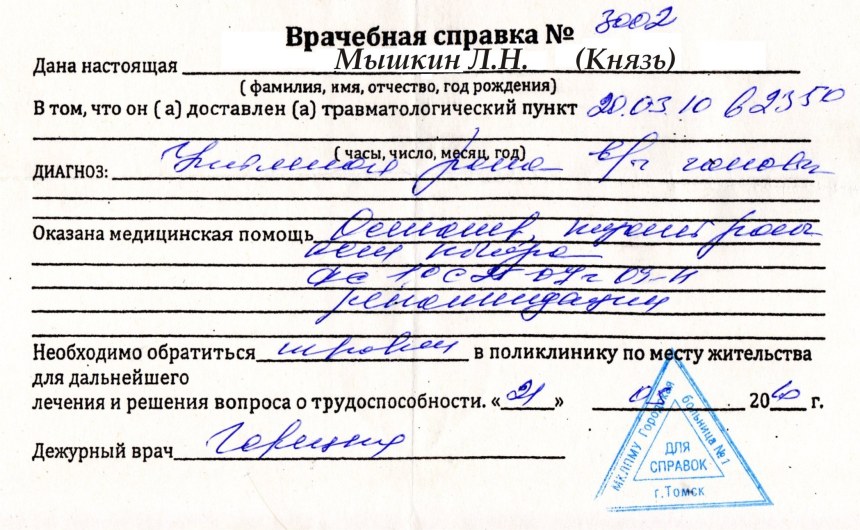 Врачебная справка № 3002
Дана настоящая Мышкин Л.Н. (Князь)
( фамилия, имя, отчество, год рождения)
В том, что он ( а) доставлен (а) травматологический пункт 20.03.10 в 23 50
( часы, число, месяц, год)
ДИАГНОЗ: Ушибленная рана в/ч головы
Оказана медицинская помощь Осмотр, туалет раны
рекомендации
Необходимо обратиться в поликлинику по месту жительства
для дальнейшего
лечения и решения вопроса о трудоспособности. «21» 03 2010 г.
Дежурный врач
МКЛПМУ Городская больница №1
ДЛЯ
СПРАВОК
г.Томск